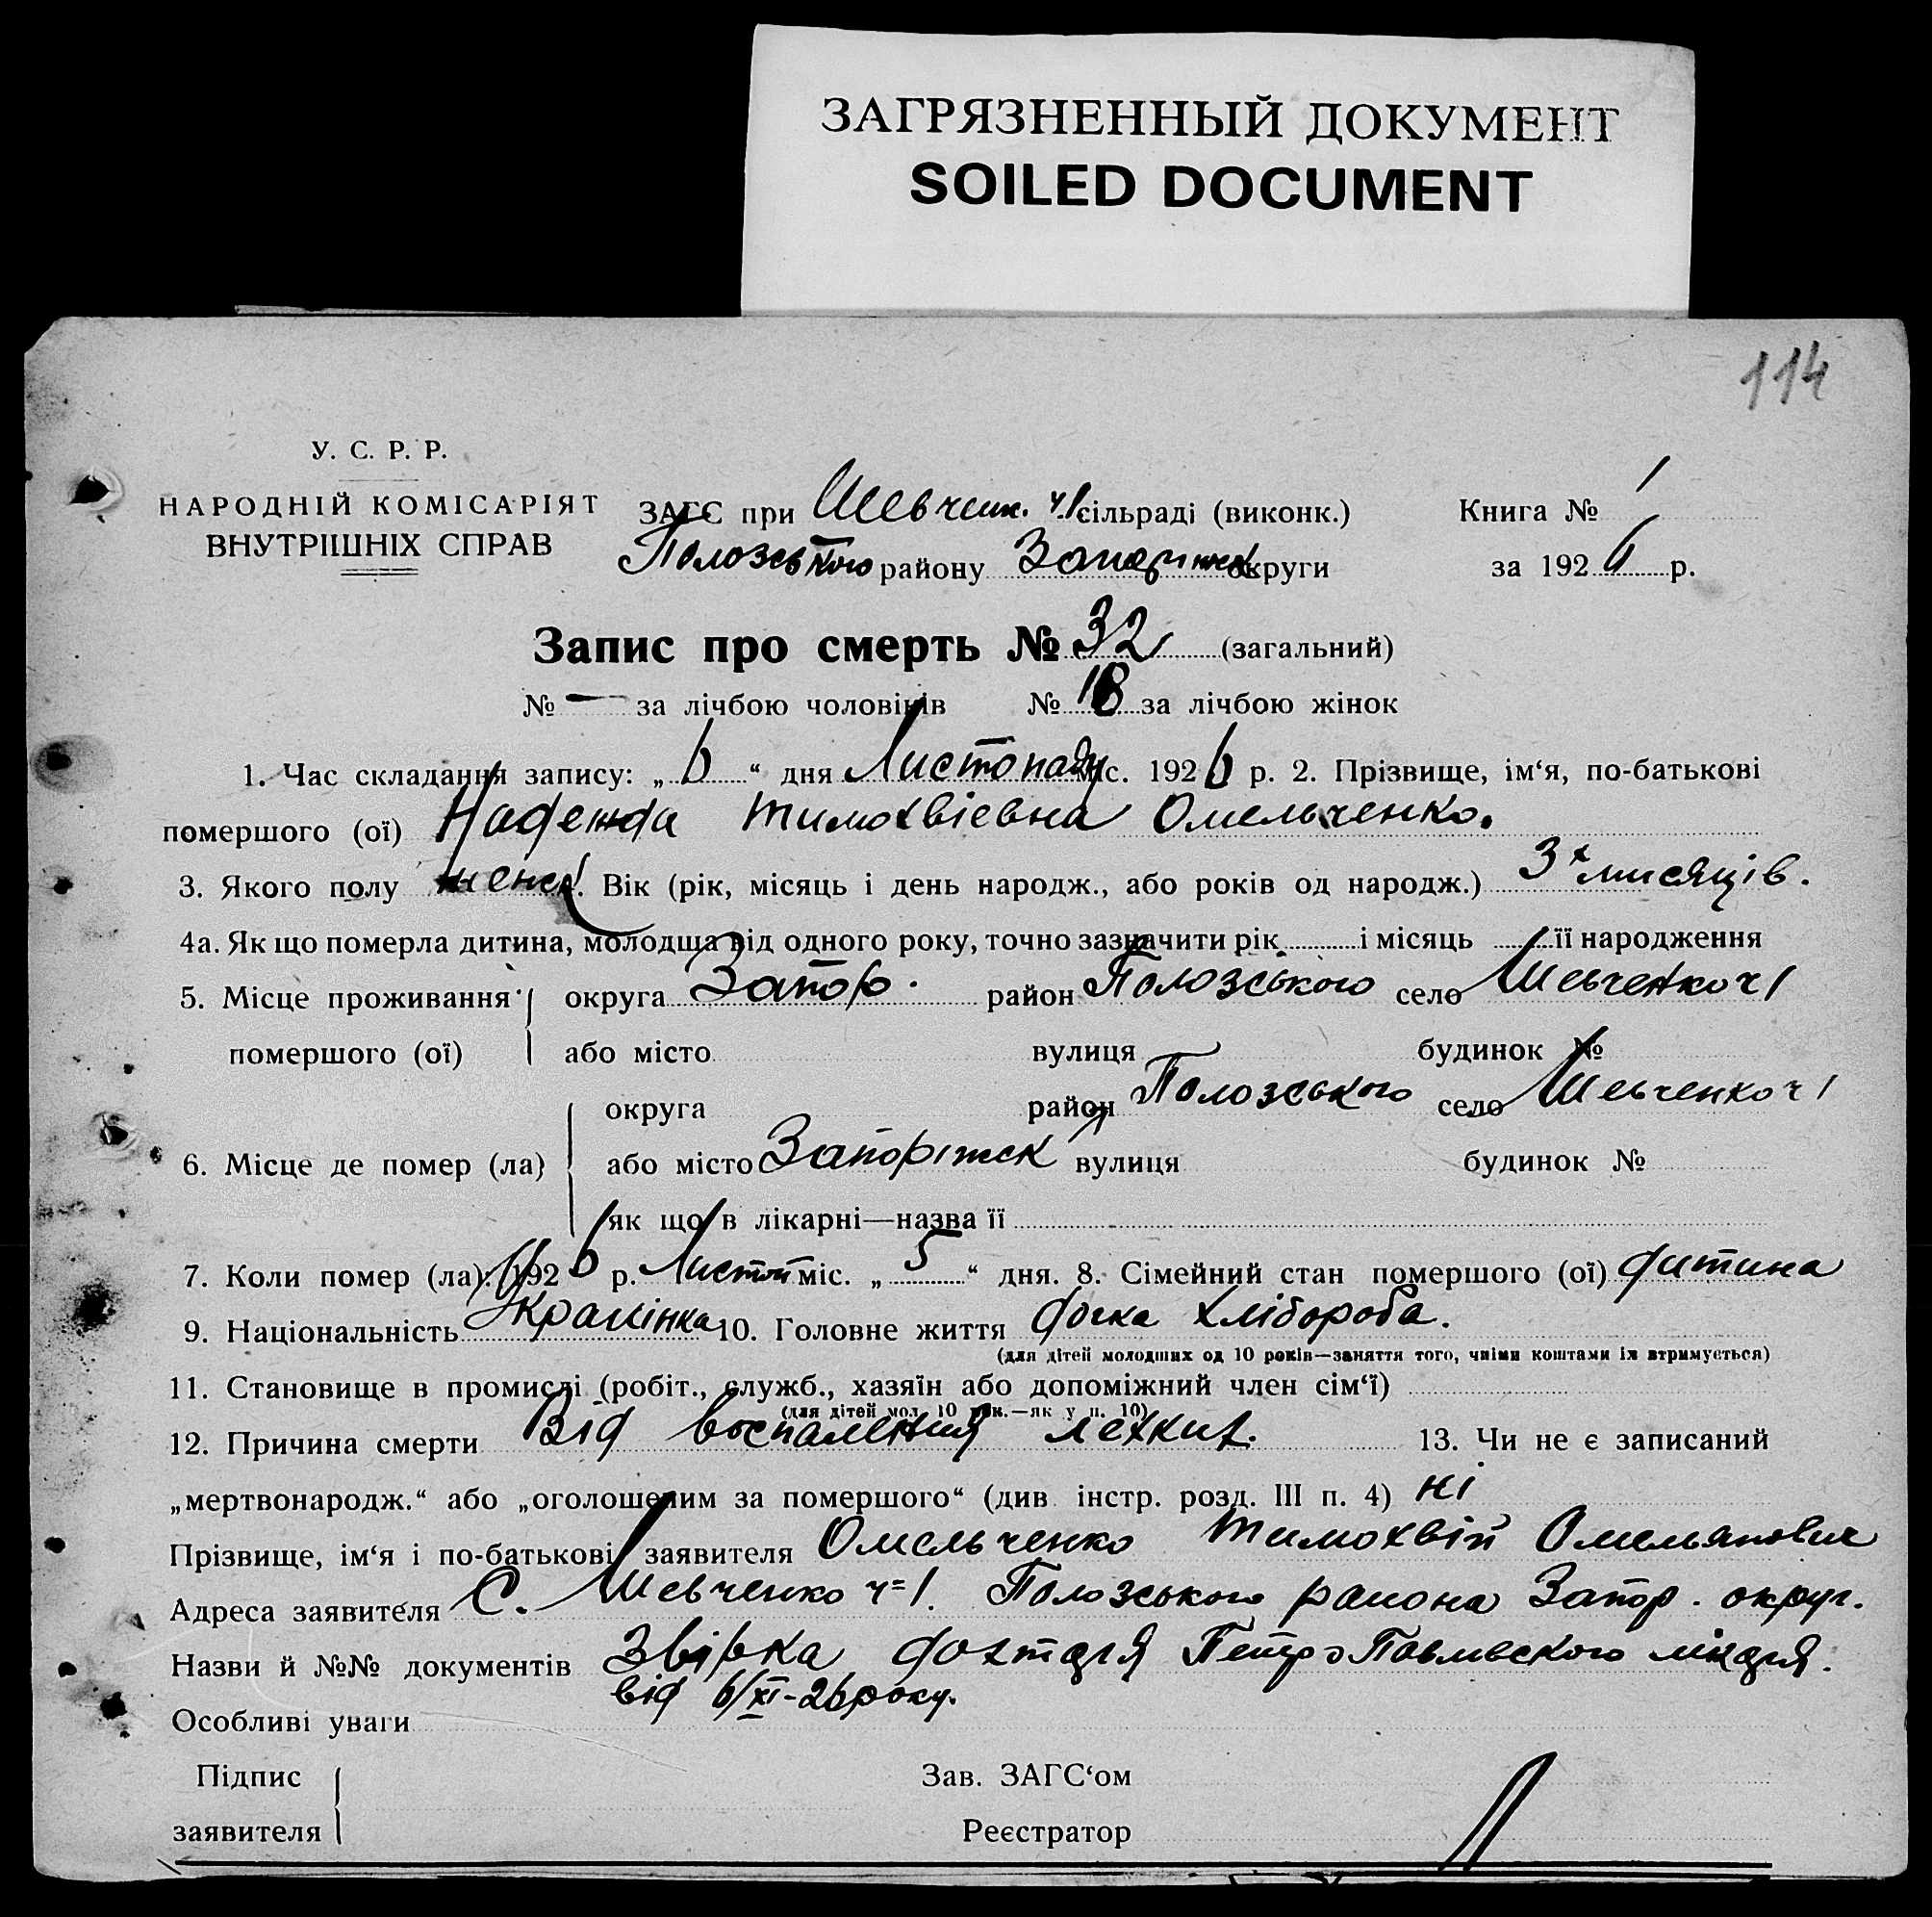 ЗАГРЯЗНЕННЫЙ ДОКУМЕНТ
SOILED DOCUMENT
114
У. С. Р. Р.
НАРОДНІЙ КОМІСАРІЯТ
ВНУТРІШНІХ СПРАВ
ЗАГС при Шевченк. ч.1 сільраді (виконк.) Книга № 1
Полозського району Запоріжськ округи за 1926 р.
Запис про смерть № 32 (загальний)
№ — за лічбою чоловіків № 18 за лічбою жінок
1. Час складання запису: „6“ дня Листопаду міс. 1926 р. 2. Прізвище, ім‘я, по-батькові
помершого (ої) Надежда Тимохвіевна Омельченко.
3. Якого полу женск. Вік (рік, місяць і день народж., або років од народж.) 3х мисяців.
4а. Як що померла дитина, молодша від одного року, точно зазначити рік і місяць її народження
5. Місце проживання округа Запор. район Полозського село Шевченко ч 1
помершого (ої) або місто вулиця будинок №
округа район Полозського село Шевченко ч 1
6. Місце де помер (ла) або місто Запоріжск вулиця будинок №
як що в лікарні—назва її
7. Коли помер (ла): 1926 р. Листоп міс. „5“ дня. 8. Сімейний стан помершого (ої) дитина
9. Національність Украінка 10. Головне життя дочка хлібороба.
(для дітей молодших од 10 років—заняття того, чиїми коштами їх втримується)
11. Становище в промислі (робіт., служб., хазяїн або допоміжний член сім‘ї)
(для дітей мол. 10 рок.—як у п. 10)
12. Причина смерти Від воспаления лехких. 13. Чи не є записаний
„мертвонародж.“ або „оголошеним за помершого“ (див. інстр. розд. III п. 4) ні
Прізвище, ім‘я і по-батькові заявителя Омельченко Тимохвій Омельянович
Адреса заявителя С. Шевченко ч=1. Полозського района Запор. округ.
Назви й №№ документів дохтаря Петро Павливского
від 6/XI-26 року.
Особливі уваги
Підпис Зав. ЗАГС‘ом
заявителя Реєстратор